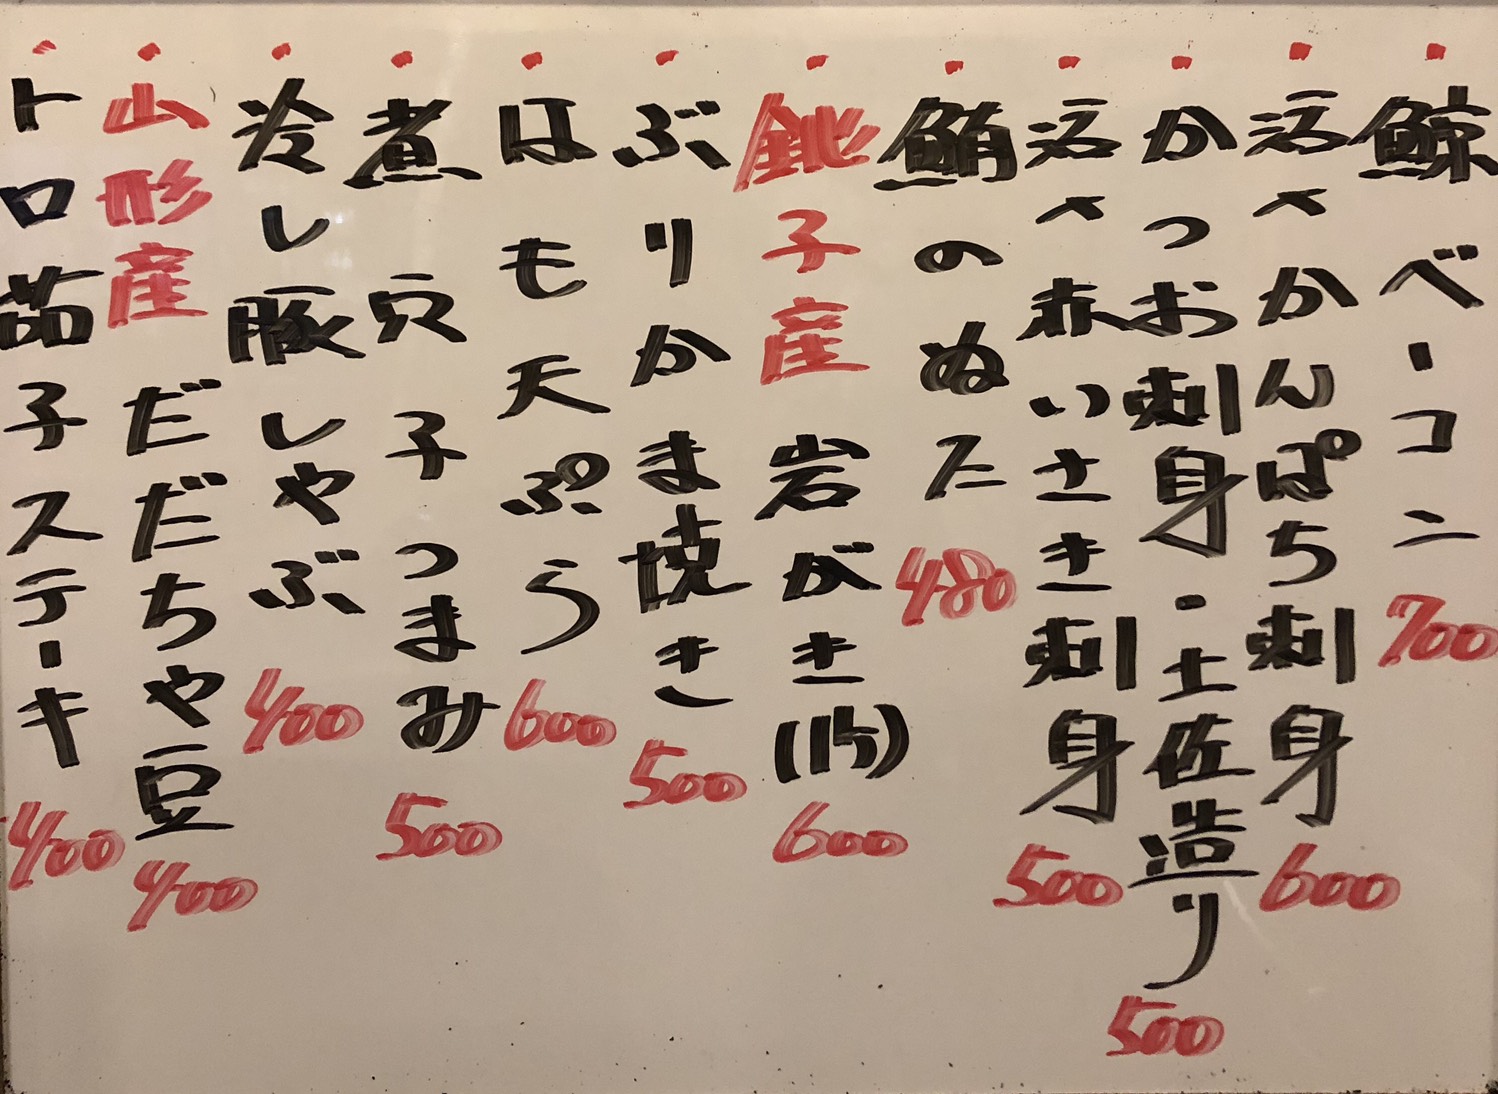 ・鯨ベーコン 700
・活〆かんぱち刺身 600
・かつお刺身・土佐造り 500
・活〆赤いさき刺身 500
・鮪のぬた 480
・銚子産 岩がき(1ケ) 600
・ぶりかま焼き 500
・はも天ぷら 600
・煮穴子つまみ 500
・冷し豚しゃぶ 400
・山形産 だだちゃ豆 400
・トロ茄子ステーキ 400